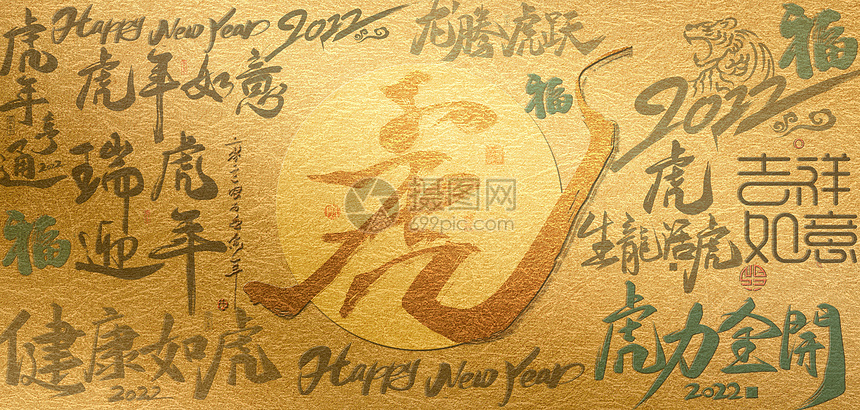 虎年亨通
Happy New Year 2022
虎年如意
瑞虎迎年
福
健康如虎
2022
龙腾虎跃
福
虎
摄图网
699pic.com
Happy New Year
福
2022
虎
生龍活虎
吉祥如意
虎力全開
2022